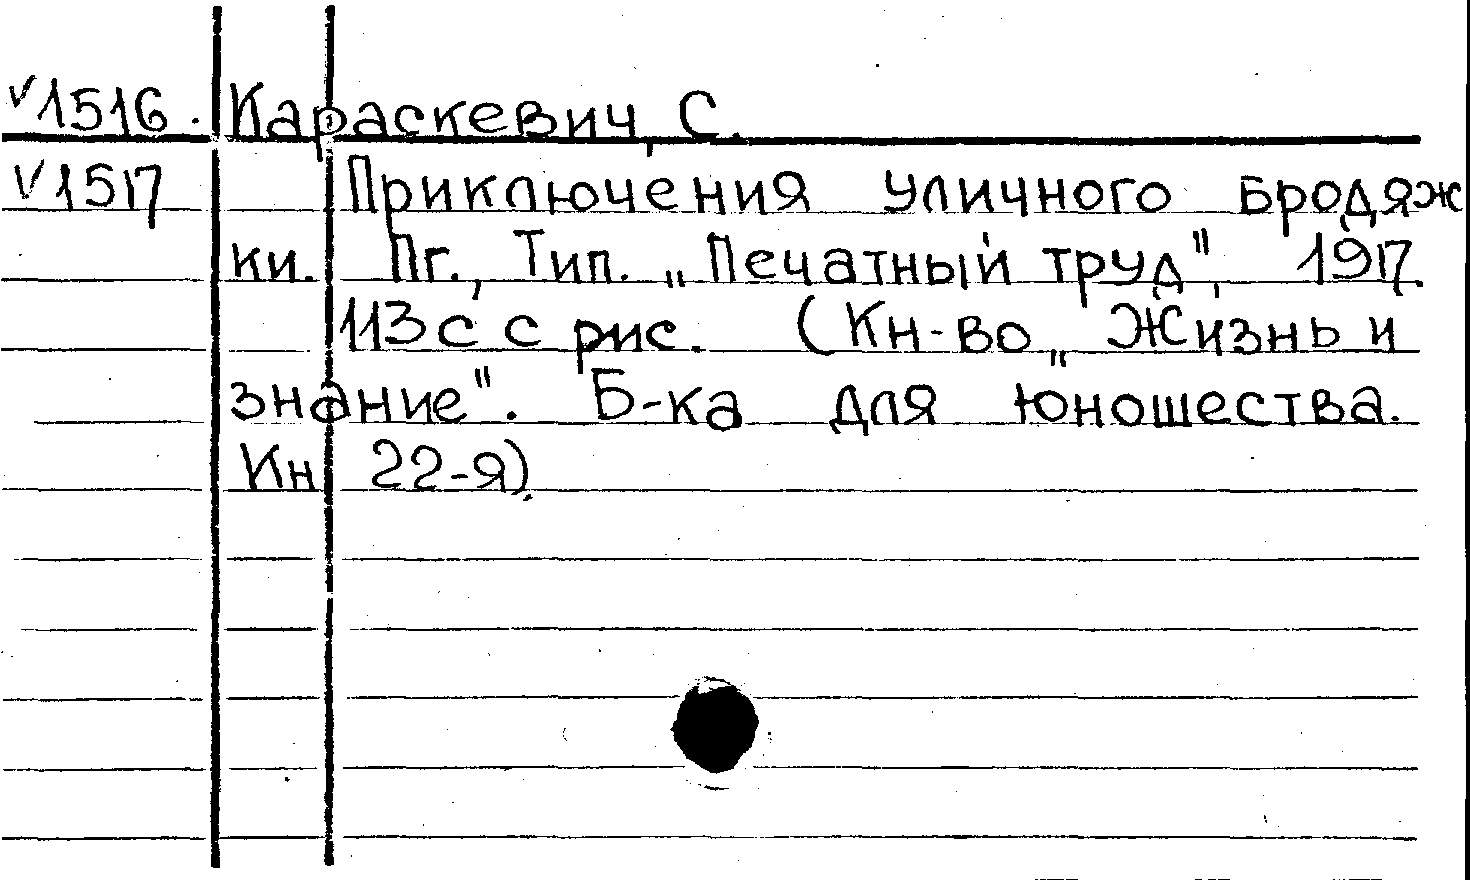 √1516. Караскевич, С.
√1517 Приключения уличного бродяж
ки. Пг., Тип. „Печатный труд", 1917.
113 с с рис. (Кн-во „Жизнь и
знание". Б-ка для юношества.
Кн 22-я).